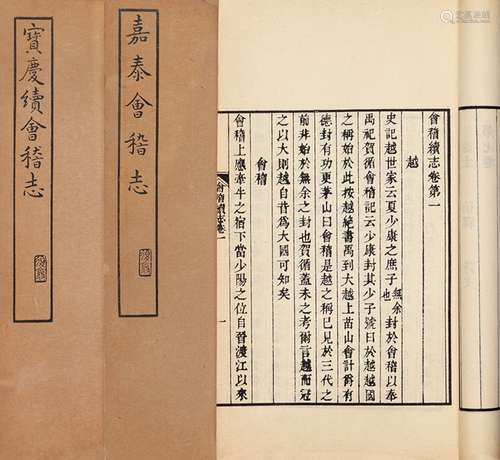 會稽續志卷第一
越
史記越世家云夏少康之庶子無余也封於會稽以奉
禹祀賀循會稽記云少康封其少子號曰於越越國
之稱始於此按越絕書禹到大越上苗山會計爵有
德封有功更茅山曰會稽是越之稱已見於三代之
前非始於無余之封也賀循蓋未之考爾言越而冠
之以大則越自昔爲大國可知矣
會稽
會稽上應牽牛之宿下當少陽之位自晉渡江以來
會稽續志卷一
一
嘉泰會稽志
寶慶續會稽志